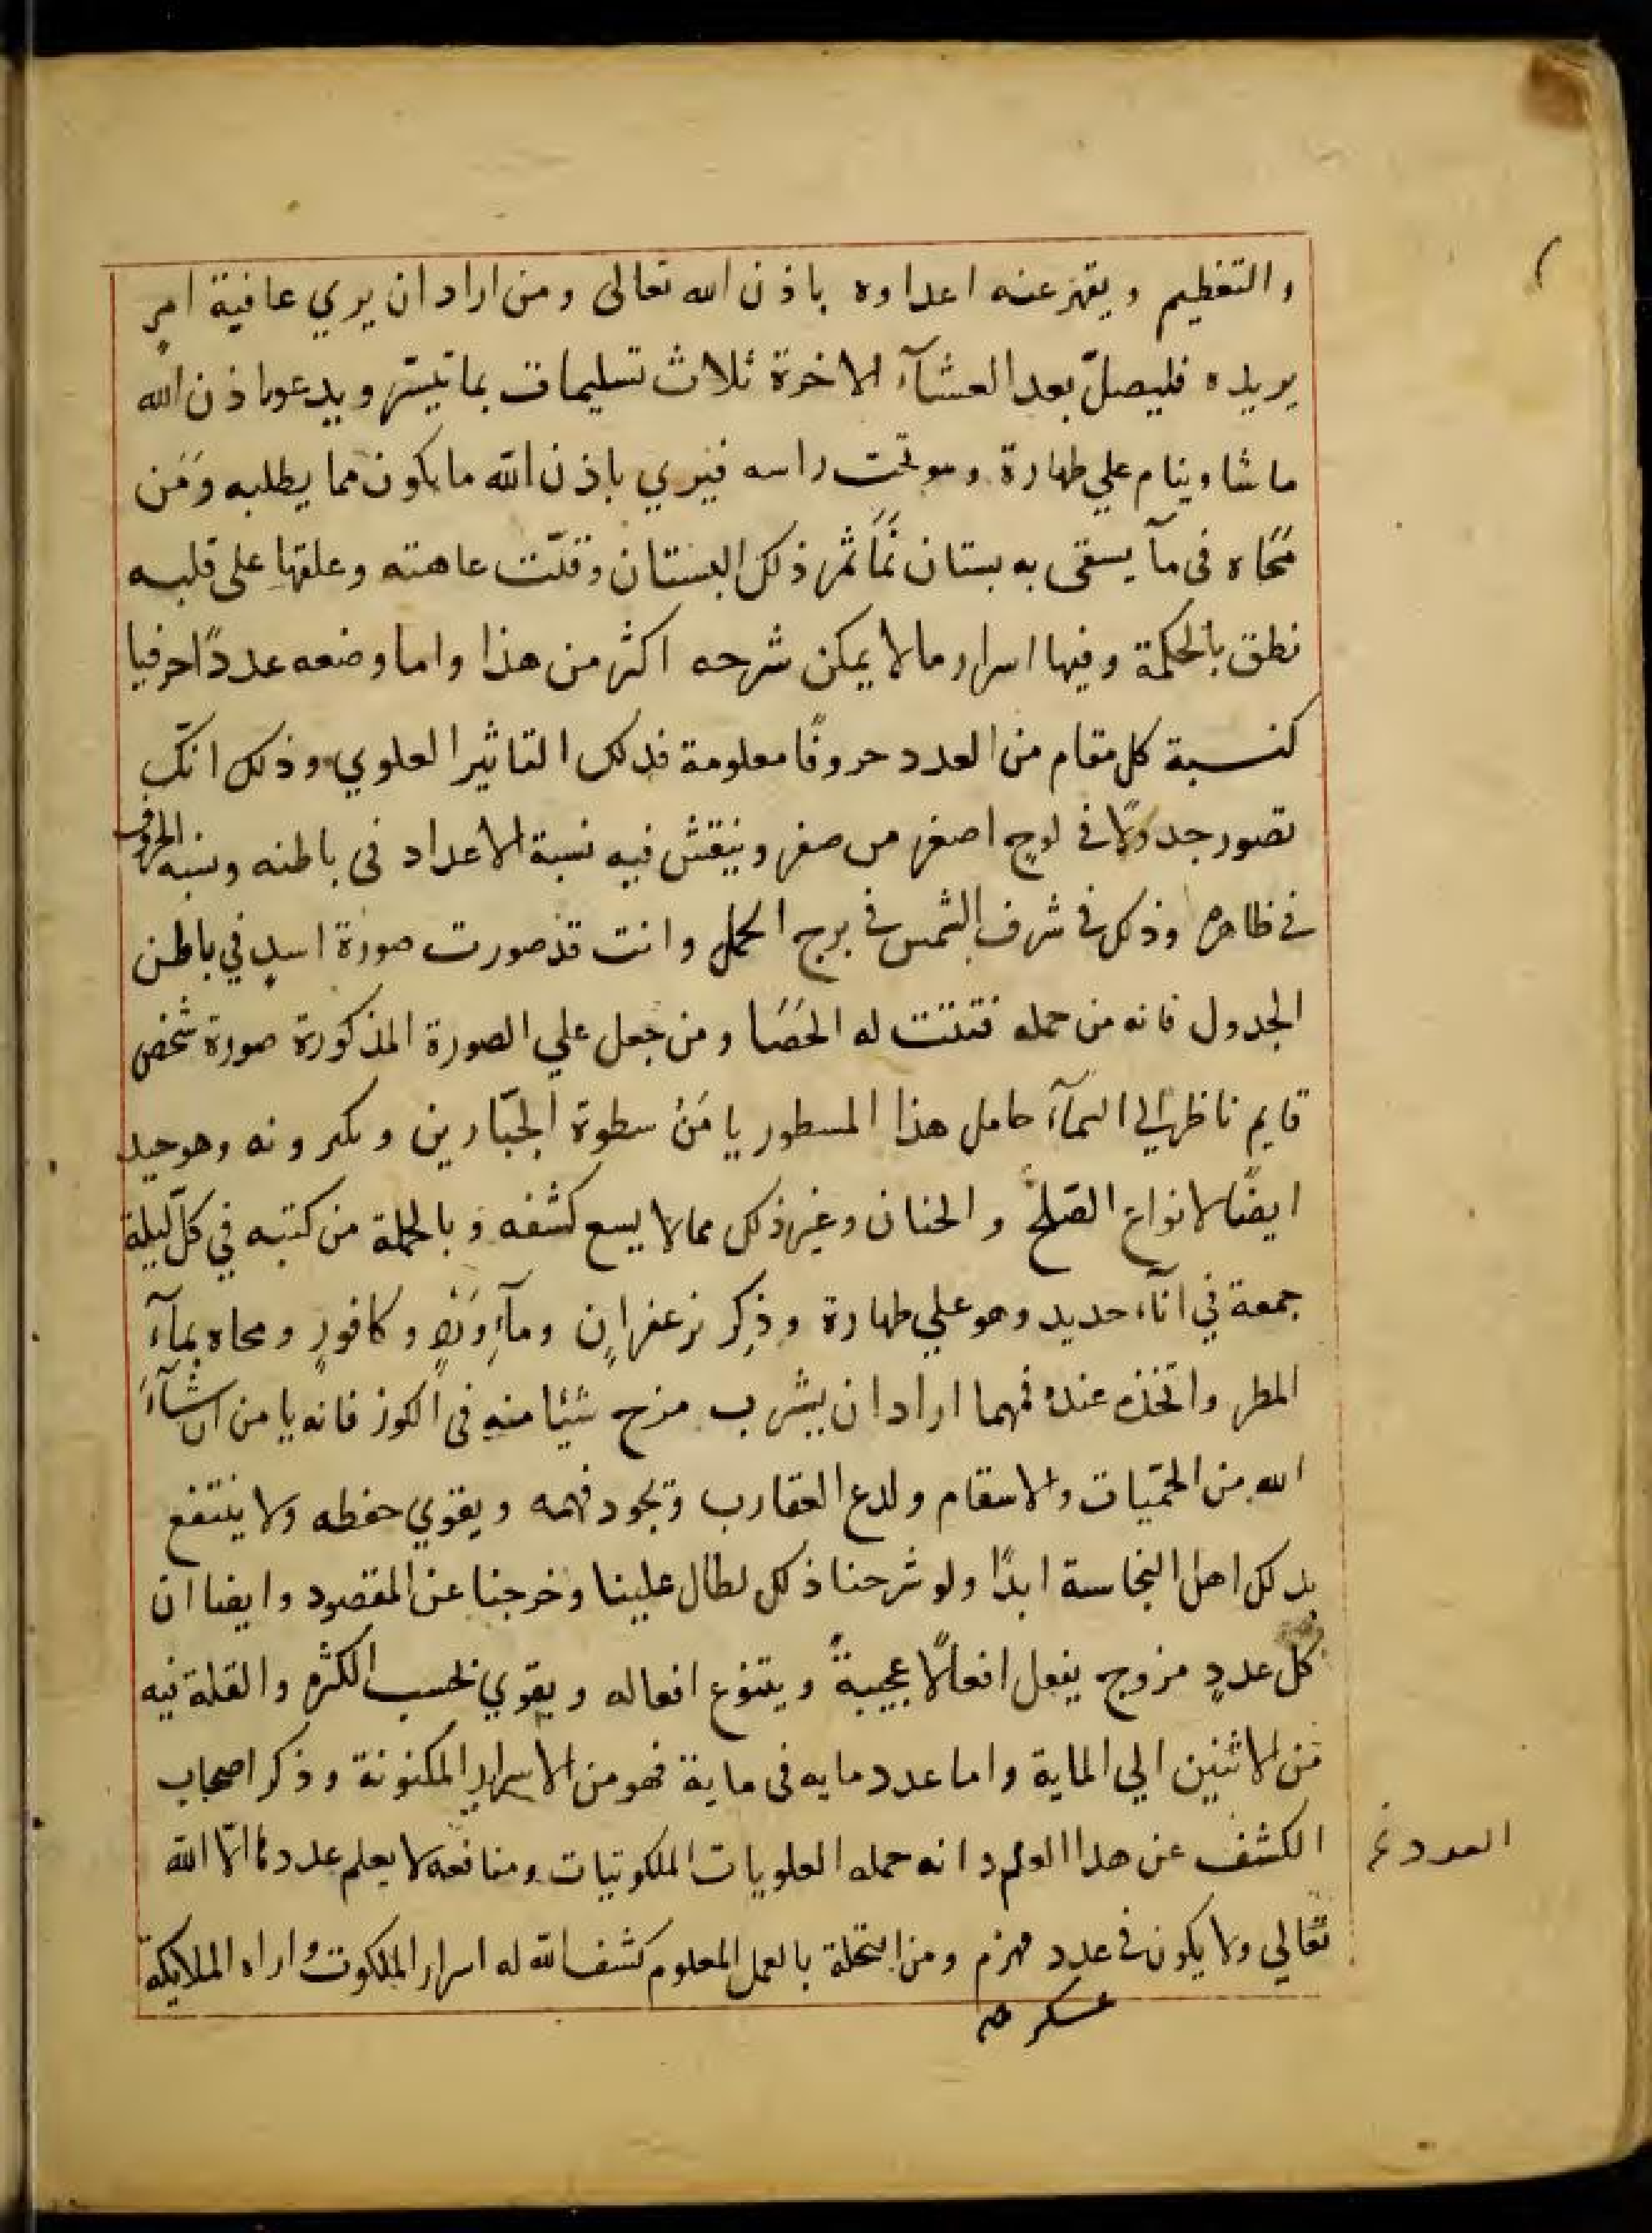 والتعظيم ويقهر عنه اعداوه باذن الله تعالى ومن اراد ان يري عافية امرٍ
يريده فليصلّ بعد العشآء الاخرة ثلاث تسليمات بما تيسّر ويدعوا ذن الله
ما شا وينام علي طهارة وهو تحت راسه فيري باذن الله ما يكون مما يطلبه وَمَن
مَحَاه فى مآ يسقى به بستان نَمَا ثمر ذلك البستان وقلّت عاهته وعلقها على قلبه
نطق بالحكمة وفيها اسرار ما لا يمكن شرحه اكثر من هذا واما وضعه عددًا حرفيا
كنسبة كل مقام من العدد حروفًا معلومة فذلك التاثير العلوي وذلك انك
تصور جدولًا فى لوح اصفر من صفر وينقش فيه نسبة الاعداد فى باطنه ونسبه الحروف
فى ظاهره وذلك فى شرف الشمس فى برج الحمل وانت قد صورت صورة اسدٍ في باطن
الجدول فانه من حمله فتتت له الحَصَا ومن جعل علي الصورة المذكورة صورة شخص
قايم ناظر الي السمآء حامل هذا المسطور يا مَنُ سطوة الجبّارين ويكرونه وهو جيد
ايضًا لانواع الصَلح والحنان وغير ذلك مما لا يسع كشفه وبالجملة من كتبه في كلّ ليلة
جمعة في انآء حديد وهو علي طهارة وذِكر زعفرانٍ ومآءِ وَرْدٍ وكافورٍ ومحاه بمآء
المطر واتخذه عنده فمهما اراد ان يشرب مزج شيئا منه فى الكوز فانه يا من ان شآءَ
الله من الحمّيات والاسقام ولدع العقارب وتجود فهمه ويقوي حفظه ولا ينتفع
بذلك اهل النجاسة ابدًا ولو شرحنا ذلك لطال علينا وخرجنا عن المقصود وايضا ان
كل عددٍ مزوج يفعل افعالًا عجيبةً ويتنوع افعاله ويقوي بحسب الكثره والقلة فيه
من الاثنين الي الماية واما عدد مايه فى ماية فهو من الاسرار المكنونة وذكر اصحاب
الكشف عن هذا العلم انه حمله العلويات الملكوتيات ومنافعه لا يعلم عددها الّا الله
العدد
تعالي ولا يكون فى عدد مهزم ومن اتخلة بالعمل المعلوم كشف الله له اسرار الملكوت واراه الملايكة
عسكره